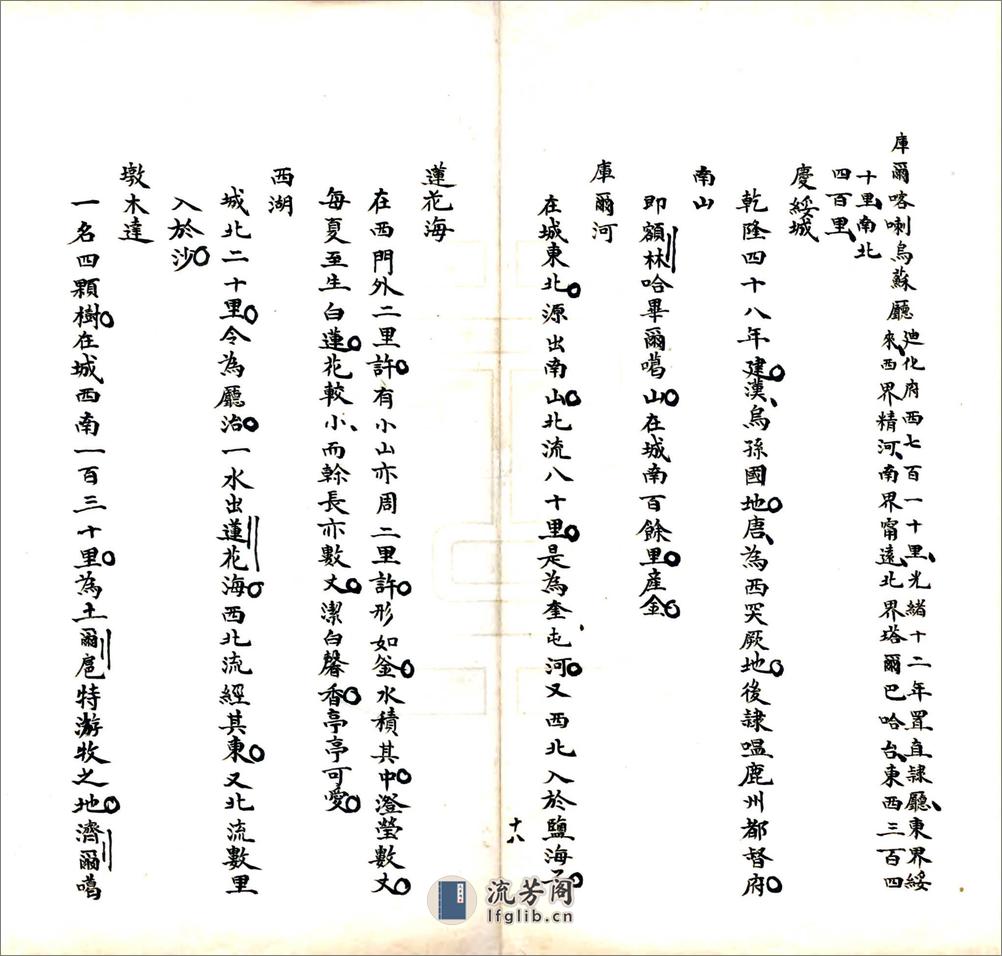 庫爾喀喇烏蘇廳迪化府西七百一十里光緒十二年置直隸廳東界綏
來西界精河南界甯遠北界塔爾巴哈台東西三百四
十里南北
四百里
慶綏城
乾隆四十八年建漢烏孫國地唐為西突厥地後隷嗢鹿州都督府
南山
即額林哈畢爾噶山在城南百餘里產金
庫爾河
在城東北源出南山北流八十里是為奎屯河又西北入於鹽海子
十八
蓮花海
在西門外二里許有小山亦周二里許形如釜水積其中澄瑩數丈
每夏至生白蓮花較小而榦長亦數丈潔白馨香亭亭可愛
西湖
城北二十里今為廳治一水出蓮花海西北流經其東又北流數里
入於沙
墩木達
一名四顆樹在城西南一百三十里為土爾扈特游牧之地濟爾噶
流芳阁
lfglib.cn